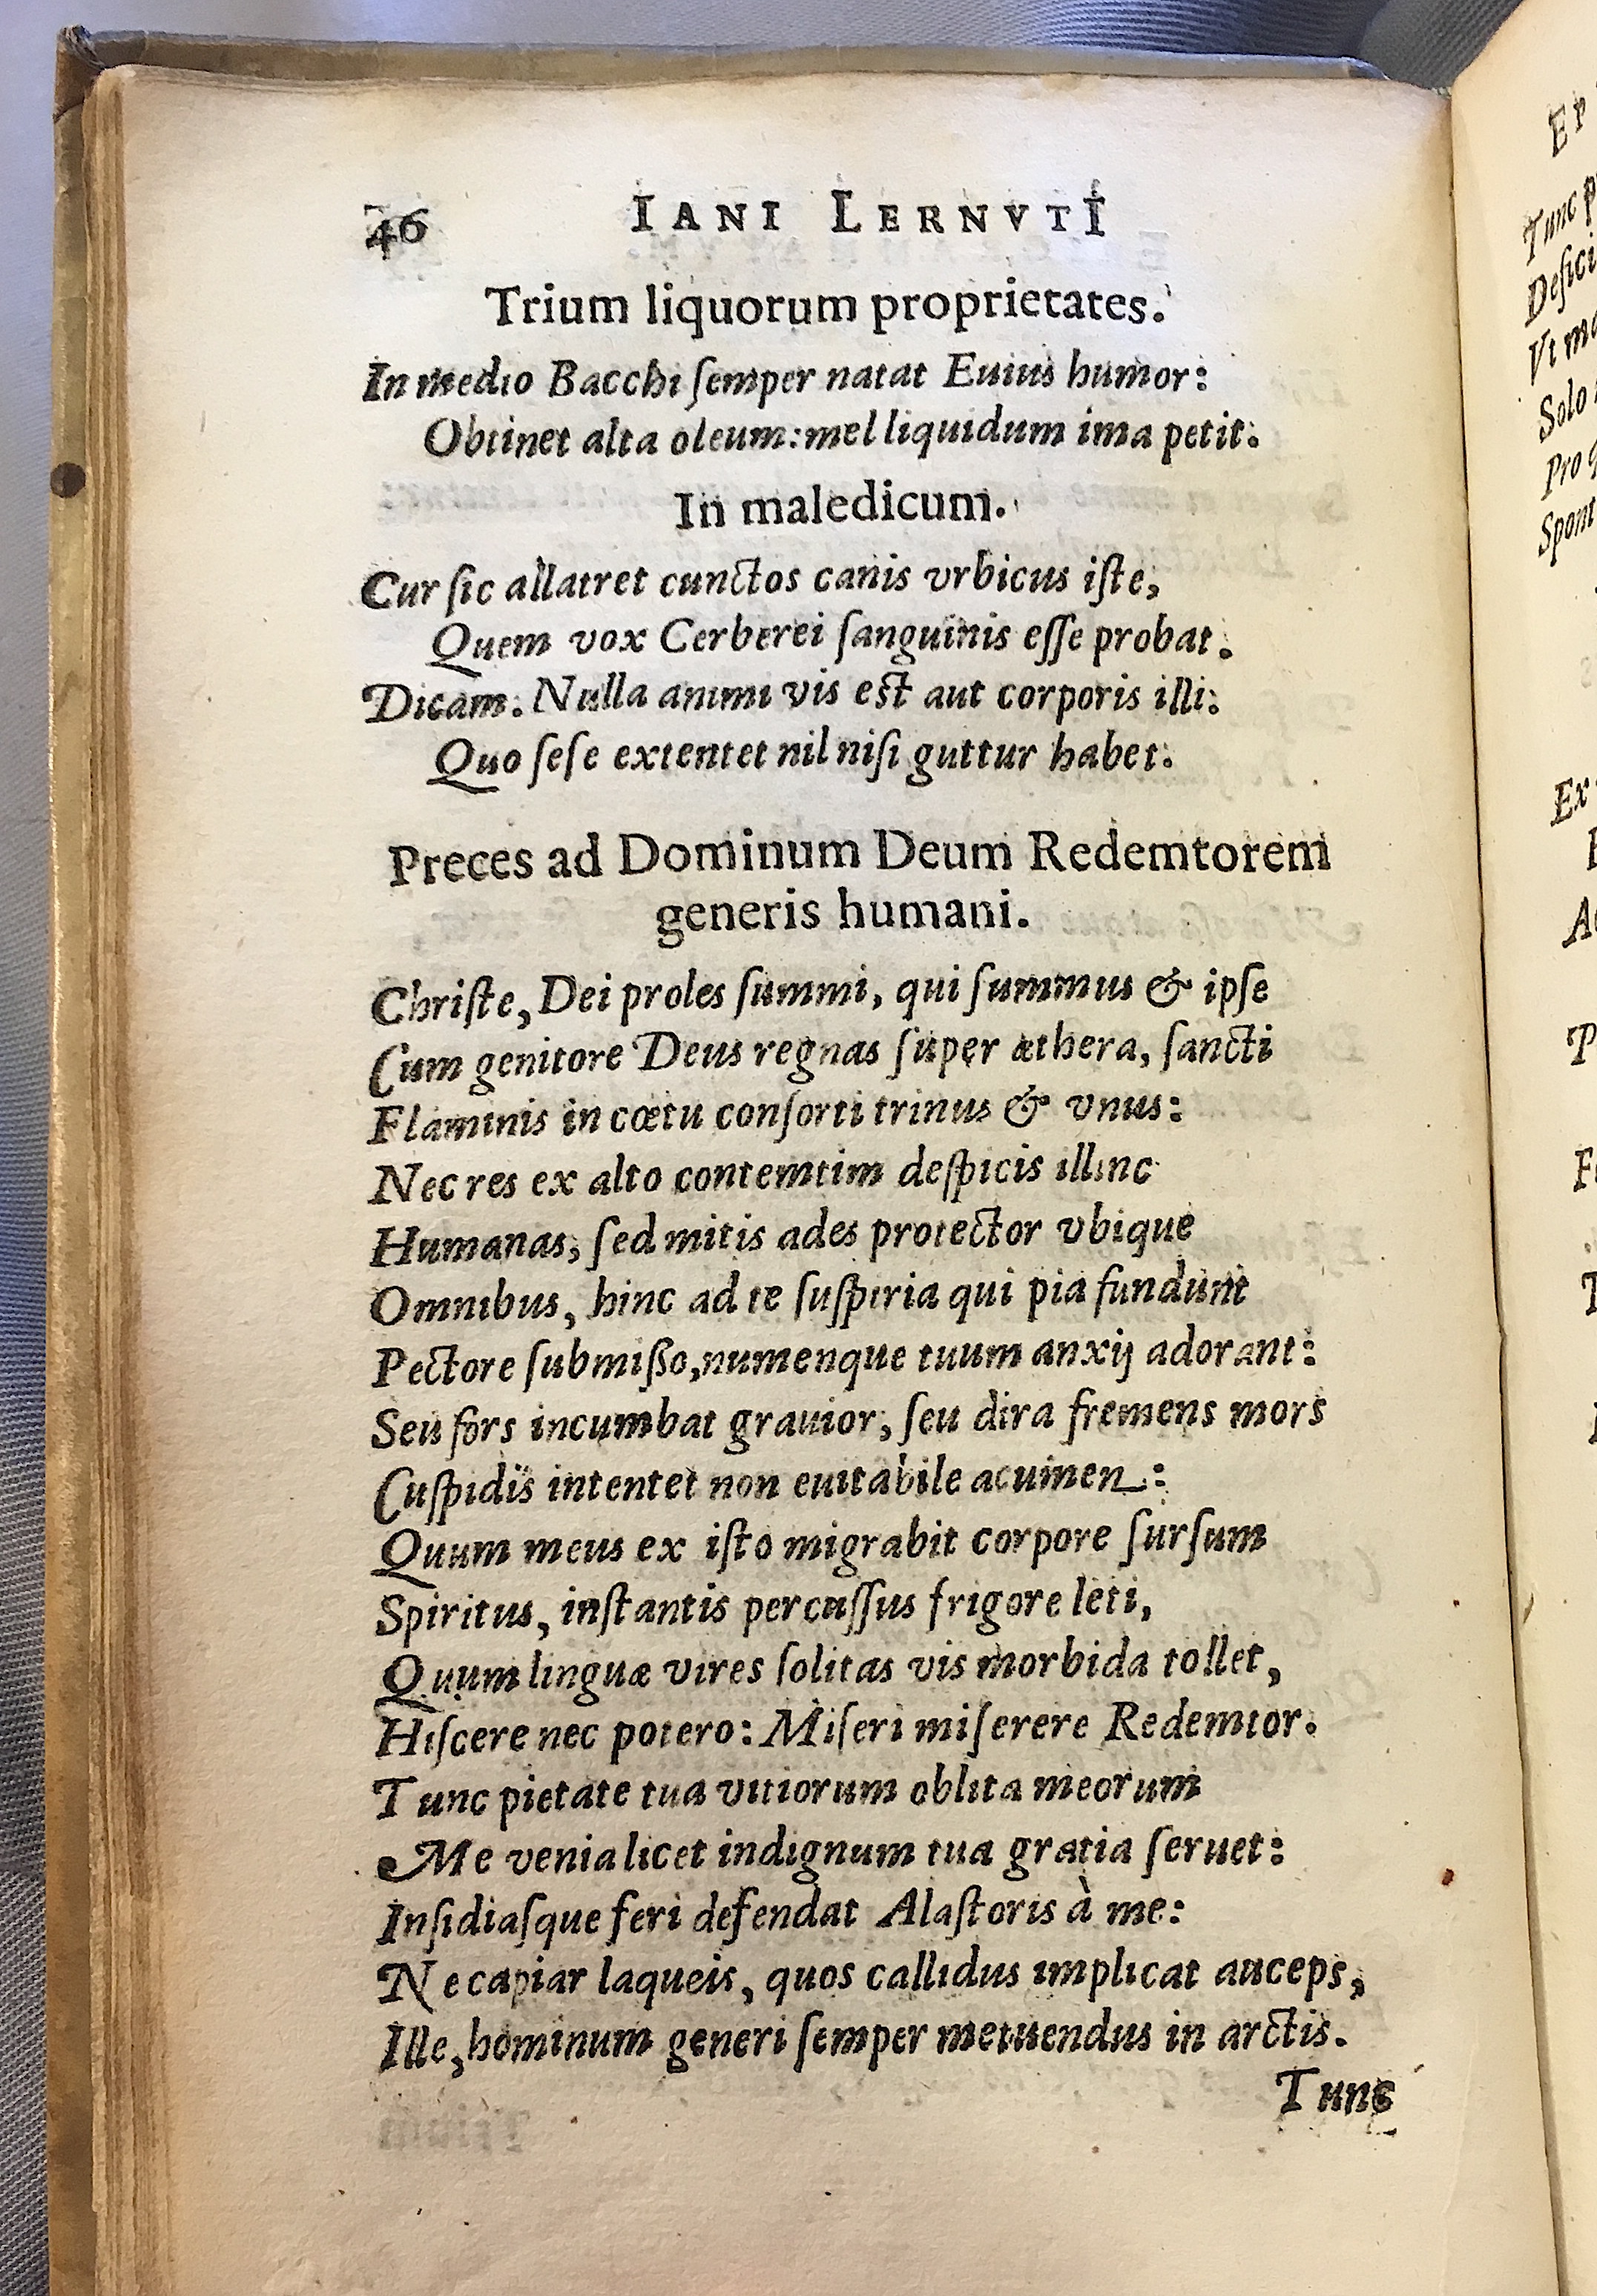 46 IANI LERNVTI
Trium liquorum proprietates.
In medio Bacchi ſemper natat Euius humor:
Obtinet alta oleum: mel liquidum ima petit.
In maledicum.
Cur ſic allatret cunctos canis vrbicus iſte,
Quem vox Cerberei ſanguinis eſſe probat.
Dicam. Nulla animi vis eſt aut corporis illi:
Quo ſeſe extentet nil niſi guttur habet.
Preces ad Dominum Deum Redemtorem
generis humani.
Chriſte, Dei proles ſummi, qui ſummus & ipſe
Cum genitore Deus regnas ſuper æthera, ſancti
Flaminis in cœtu conſorti trinus & vnus:
Nec res ex alto contemtim deſpicis illinc
Humanas, ſed mitis ades protector vbique
Omnibus, hinc ad te ſuſpiria qui pia fundunt
Pectore ſubmißo, numenque tuum anxij adorant:
Seu fors incumbat grauior, ſeu dira fremens mors
Cuſpidis intentet non euitabile acumen:
Quum meus ex iſto migrabit corpore ſurſum
Spiritus, inſtantis percuſſus frigore leti,
Quum linguæ vires ſolitas vis morbida tollet,
Hiſcere nec potero: Miſeri miſerere Redemtor.
Tunc pietate tua vitiorum oblita meorum
Me venia licet indignum tua gratia ſeruet:
Inſidiaſque feri defendat Alaſtoris à me:
Ne capiar laqueis, quos callidus implicat auceps,
Ille, hominum generi ſemper metuendus in arctis.
Tunc
Ep
Tunc
Defici
Vt
Solo
Pro
Spont
Ex